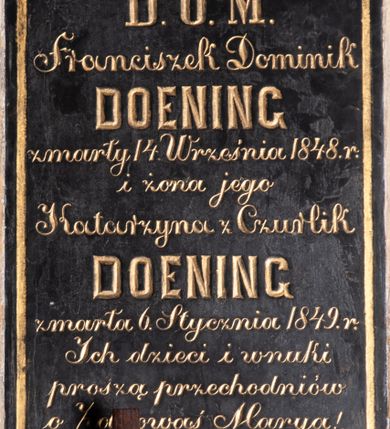 D. O. M.
Franciszek Dominik
DOENING
zmarły 14. Września 1848. r.
i żona jego
Katarzyna z Czurlik
DOENING
zmarła 6. Stycznia 1849. r.
Ich dzieci i wnuki
proszą przechodniów
o Marya!